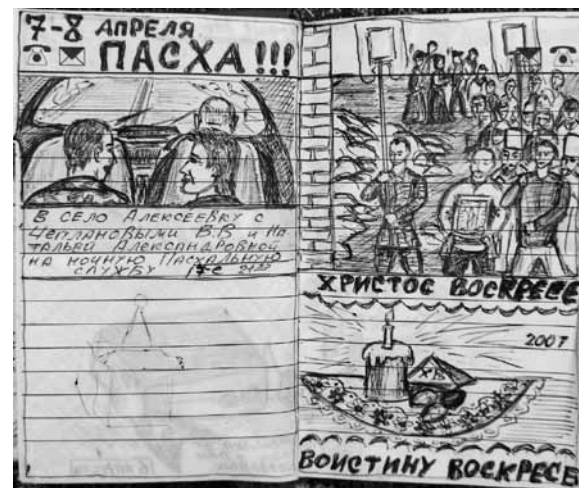 7-8 АПРЕЛЯ
ПАСХА!!!
В СЕЛО АЛЕКСЕЕВКУ С
ЧЕПЛАНОВЫМИ В.В И НА
ТАЛЬЕЙ АЛЕКСАНДРОВКОЙ
НА НОЧНУЮ ПАСХАЛЬНУЮ
СЛУЖБУ
ХРИСТОС ВОСКРЕСЕ
2007
ХВ
ВОИСТИНУ ВОСКРЕСЕ